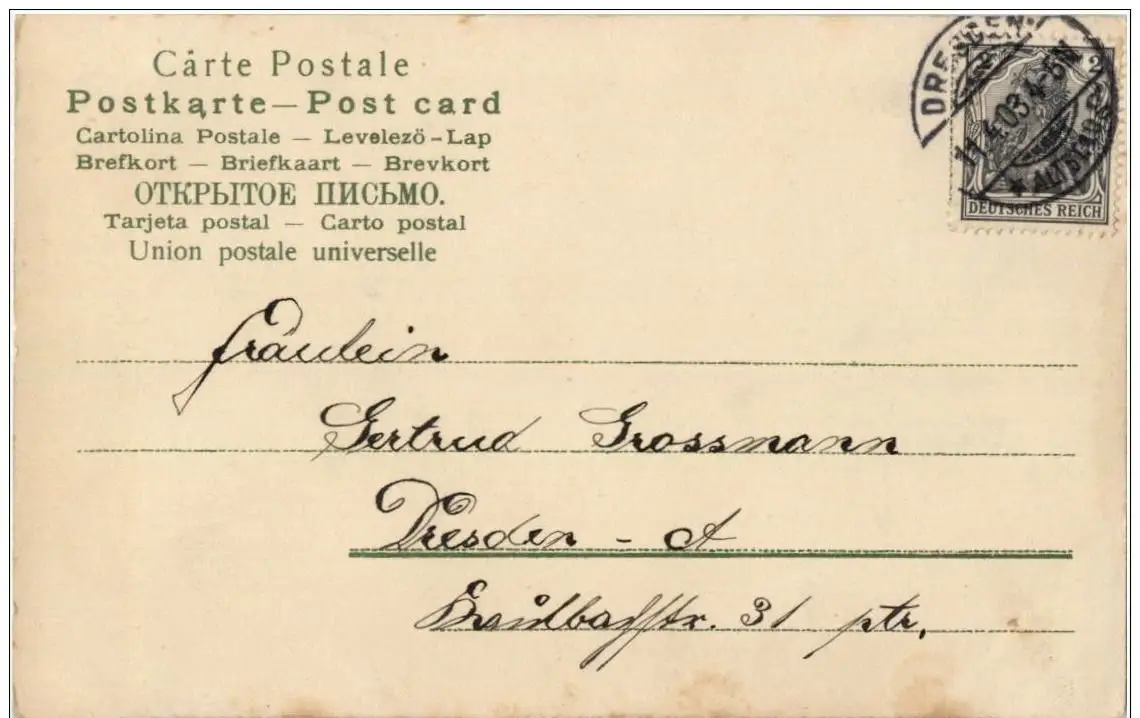 Cârte Postale
Postkarte — Post card
Cartolina Postale — Levelező-Lap
Brefkort — Briefkaart — Brevkort
ОТКРЫТОЕ ПИСЬМО.
Tarjeta postal — Carto postal
Union postale universelle
DRESDEN
11.4.03.4-5N
* ALTST.
2
DEUTSCHES REICH
Fräulein
Gertrud Grossmann
Dresden - A
31 ptr.